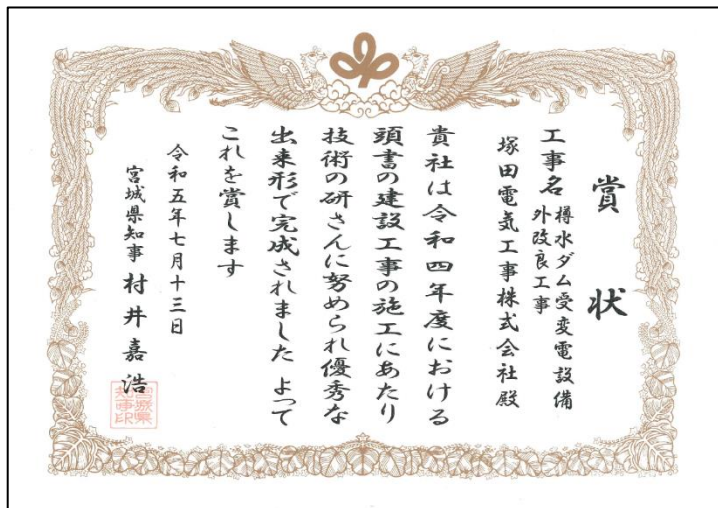 賞状
工事名 樽水ダム受変電設備
外改良工事
塚田電気工事株式会社殿
貴社は令和四年度における
頭書の建設工事の施工にあたり
技術の研さんに努められ優秀な
出来形で完成されました よって
これを賞します
令和五年七月十三日
宮城県知事 村井嘉浩
宮城県
知事印